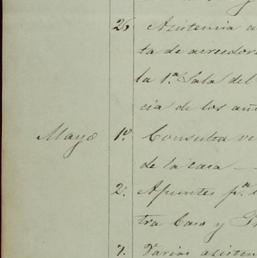 26 Asistencia a
ta de acreedor
la 1ª Sala del
cia de los añ
Mayo 1º Consulta ve
de la casa
2. Apuntes pª
tra Casa y
7. Varias asisten